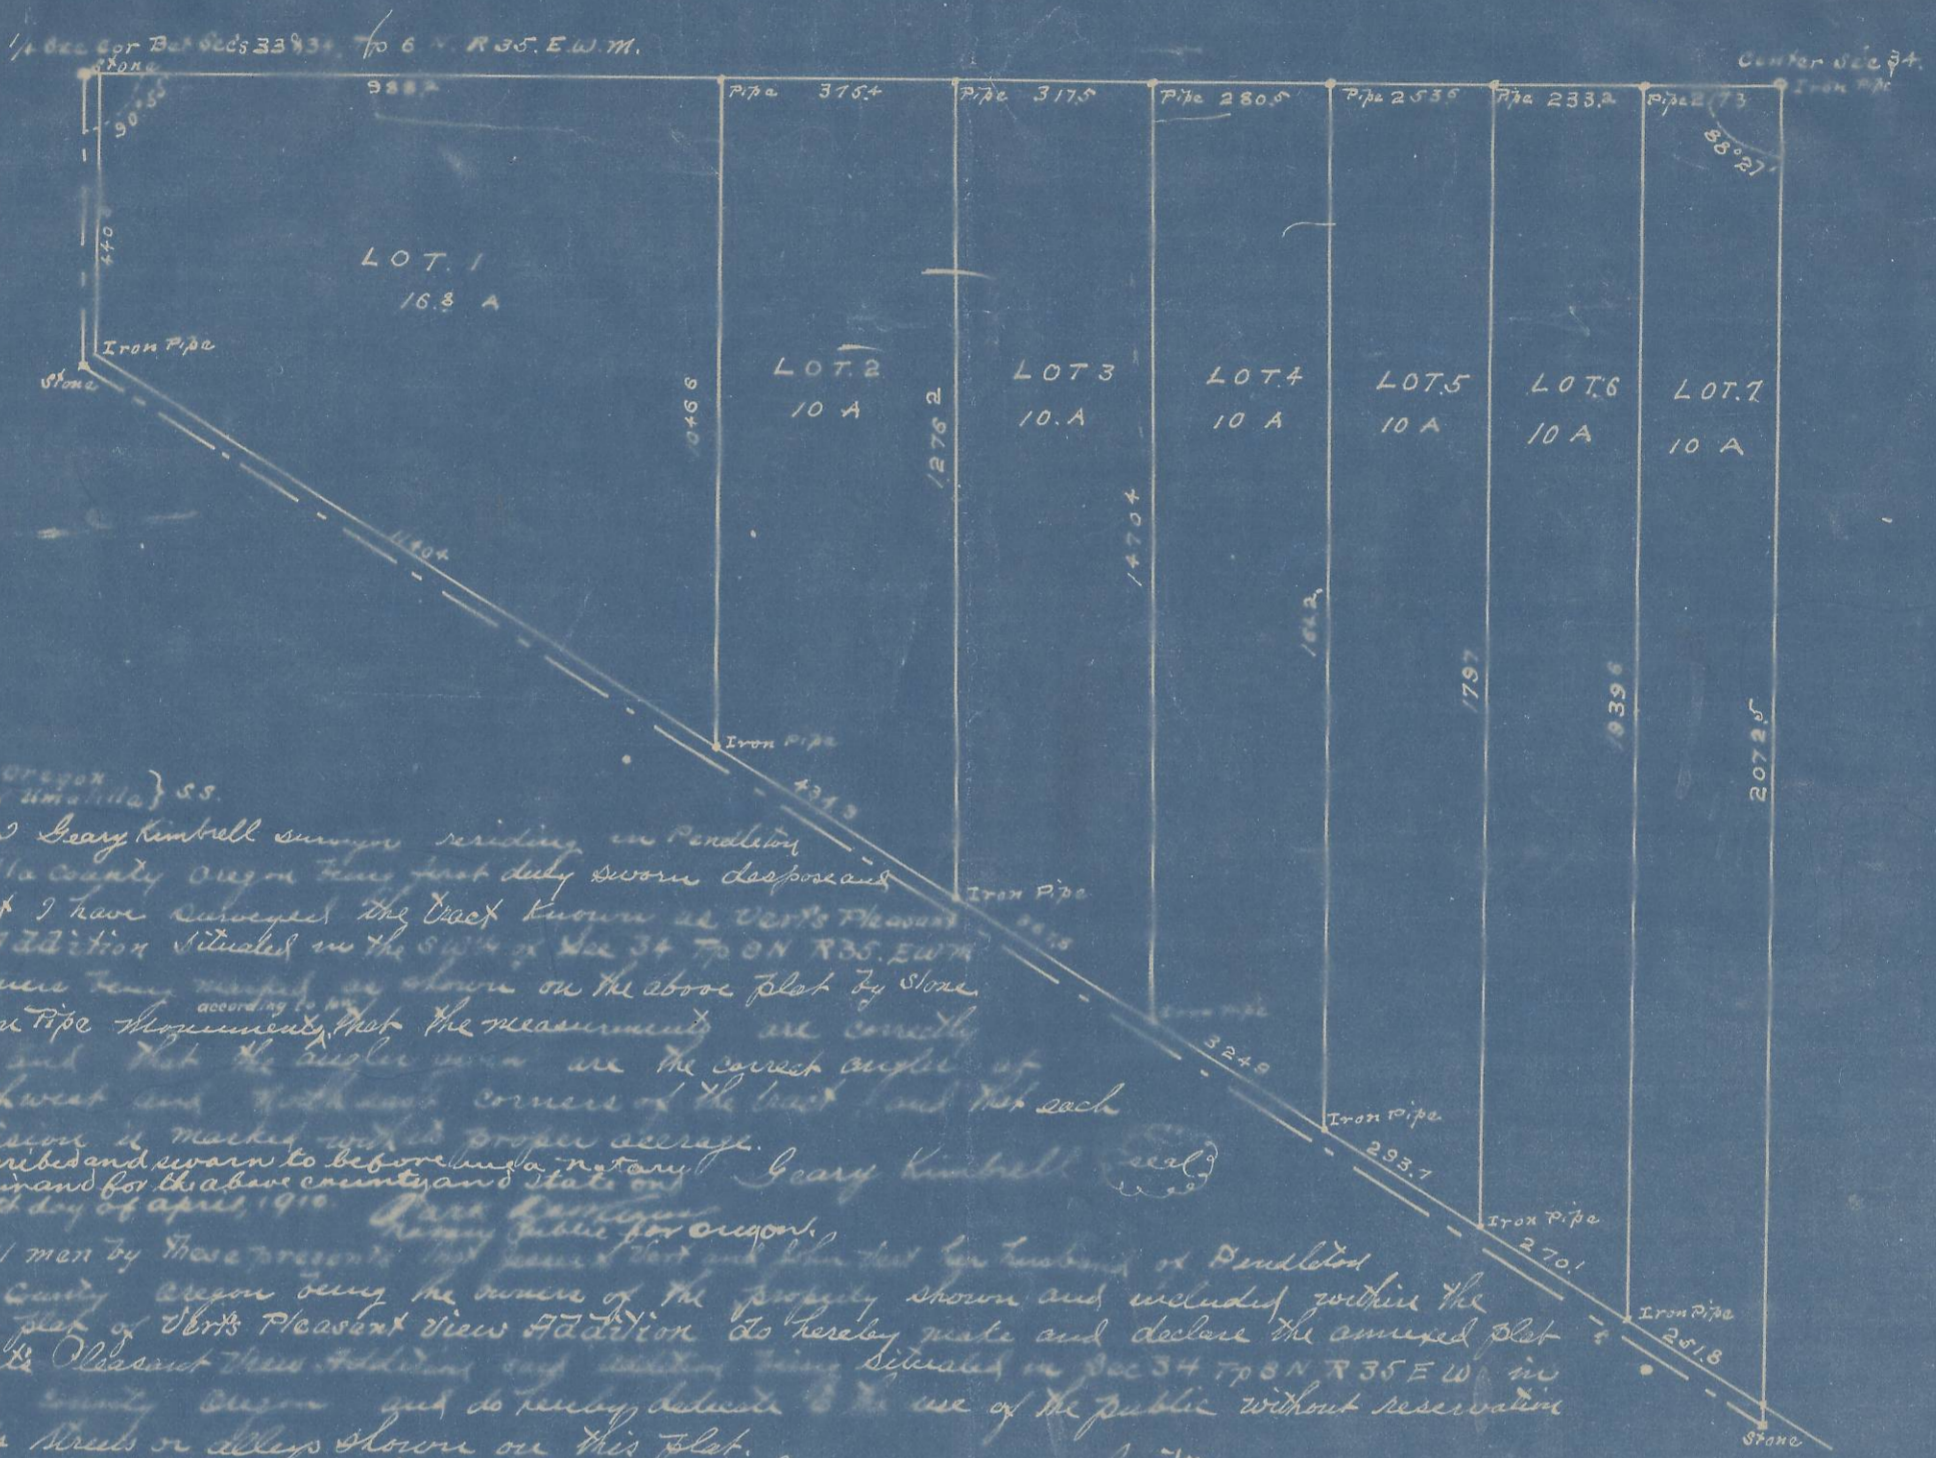 1/4 Sec cor Bet Sec's 33 & 34, Tp 6 N. R 35. E. W. M.
Center Sec 34.
Stone
Iron Pipe
988.2
Pipe 375.4
Pipe 317.5
Pipe 280.5
Pipe 253.6
Pipe 233.2
Pipe 217.3
90°55'
88°27'
440
LOT. 1
16.8 A
Iron Pipe
Stone
LOT. 2
10 A
LOT 3
10. A
LOT. 4
10 A
LOT. 5
10 A
LOT. 6
10 A
LOT. 7
10 A
1046 6
1276 2
1470 4
1642.
1797
1939 6
2072.5
1140 4
Iron Pipe
434.3
Iron Pipe
Iron Pipe
324.9
Iron Pipe
293.7
Iron Pipe
270.1
Iron Pipe
251.8
Stone
Oregon
Umatilla } S.S.
Geary Kimbrell surveyor residing in Pendleton
county Oregon being first duly sworn despose and
I have surveyed the tract Known as Vert's Pleasant
Addition situated in the SW 1/4 of Sec 34 Tp 6 N R 35. E W M
being marked as shown on the above plat by Stone
according to my
Pipe Monuments, that the measurments are correctly
and that the angles are the correct angles at
and Northeast corners of the tract, and that each
is marked with its proper acerage.
and sworn to before me a notary
in and for the above county and state on
day of April, 1910.
Geary Kimbrell
Seal
Notary Public for Oregon.
men by these presents that Vert and John Vert her husband of Pendleton
County Oregon being the owners of the property shown and included within the
plat of Vert's Pleasant View Addition do hereby make and declare the annexed plat
Pleasant View Addition said addition being situated in Sec 34 Tp 6 N R 35 E W in
county Oregon and do hereby dedicate to the use of the public without reservation
streets or alleys shown on this plat.